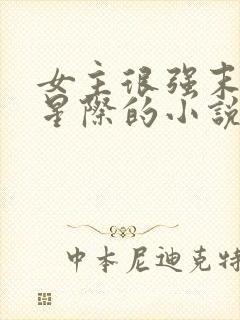 女主很强末
星際的小說
中本尼迪克特